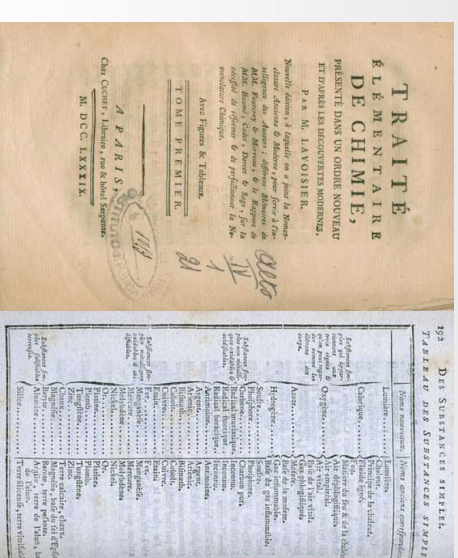 TRAITÉ
ÉLÉMENTAIRE
DE CHIMIE,
PRÉSENTÉ DANS UN ORDRE NOUVEAU
ET D'APRÈS LES DÉCOUVERTES MODERNES,
PAR M. LAVOISIER.
Nouvelle édition, à laquelle on a joint la Nomen-
clature Ancienne & Moderne, pour servir à l'in-
telligence des Auteurs; différens Mémoires de
MM. Fourcroy & Morveau, & le Rapport de
MM. Baumé, Cadet, Darcet & Sage, sur la
nécessité de réformer & de perfectionner la No-
menclature Chimique.
Avec Figures & Tableaux.
TOME PREMIER.
A PARIS,
Chez CUCHET, Libraire, rue & hôtel Serpente.
M. DCC. LXXXIX.
Alto
IV
1
21
192 DES SUBSTANCES SIMPLES.
TABLEAU DES SUBSTANCES SIMPLES
Noms nouveaux. Noms anciens
Lumière Lumière.
Chaleur.
Calorique Principe de la chaleur.
Fluide igné.
Feu.
Matière du feu & de la chaleur.
Oxygène Air déphlogistiqué.
Air empiréal.
Air vital.
Base de l'air vital.
Azote Gaz phlogistiqué.
Mofete.
Base de la mofete.
Hydrogène Gaz inflammable.
Base du gaz inflammable.
Soufre Soufre.
Phosphore Phosphore.
Carbone Charbon pur.
Radical muriatique Inconnu.
Radical fluorique Inconnu.
Radical boracique Inconnu.
Antimoine Antimoine.
Argent Argent.
Arsenic Arsenic.
Bismuth Bismuth.
Cobalt Cobalt.
Cuivre Cuivre.
Etain Etain.
Fer Fer.
Manganèse Manganèse.
Mercure Mercure.
Molybdène Molybdène.
Nickel Nickel.
Or Or.
Platine Platine.
Plomb Plomb.
Tungstène Tungstène.
Zinc Zinc.
Chaux Terre calcaire, chaux.
Magnésie Magnésie, base du sel d'Epsom
Baryte Barote, terre pesante.
Alumine Argile, terre de l'alun, base
de l'alun.
Silice Terre siliceuse, terre vitrifiable